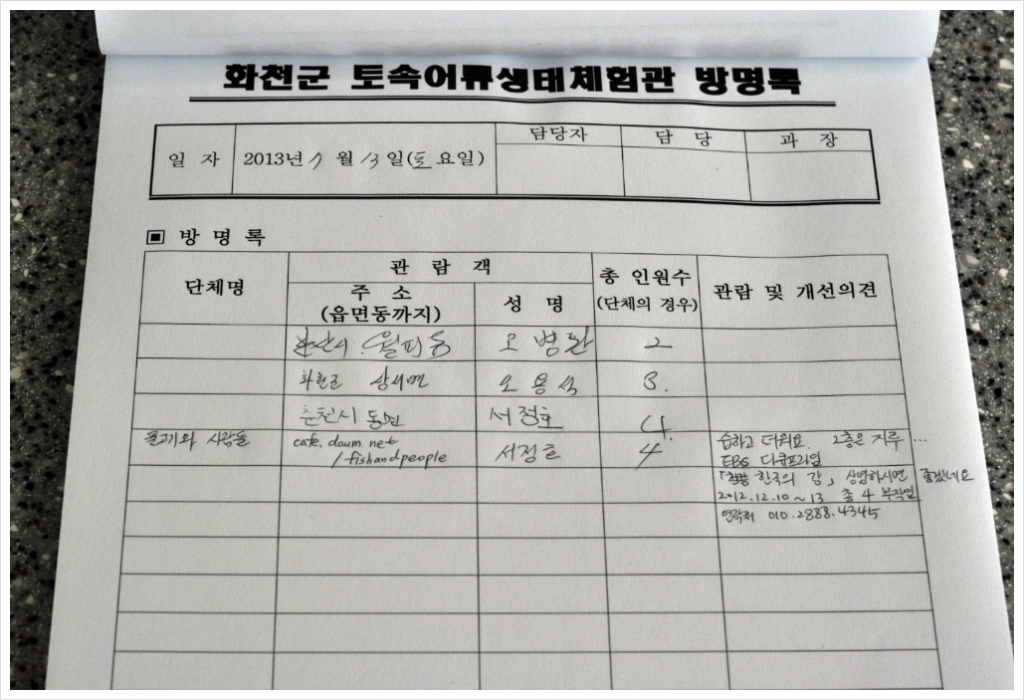 화천군 토속어류생태체험관 방명록
담당자 담 당 과 장
일 자 2013년 7 월 13 일(토 요일)
▣ 방 명 록
단체명 관 람 객 총 인원수 (단체의 경우) 관람 및 개선의견
주 소 (읍면동까지) 성 명
안산시 월피동 오병환 2
화천군 상서면 오용석 3.
춘천시 동면 서정호 4.
물고기와 사람들 cafe.daum.net 서정호 4 습하고 더워요. 2층은 지루 …
/fishandpeople EBS 다큐프라임
「한국의 강」 상영하시면 좋겠네요
2012.12.10~13 총 4 부작임
연락처 010.2888.4345